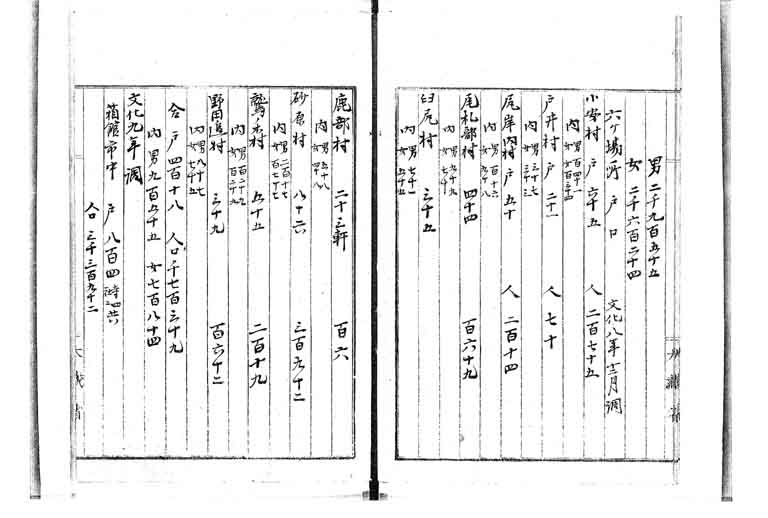 男 二千九百五十五
女 二千六百二十四
六ケ場所 戸口 文化八年十二月調
小安村 戸 六十五 人 二百七十五
内 男 百四十一 女 百三十四
戸井村 戸 二十一 人 七十
内 男 三十七 女 三十三
尾岸内村 戸 五十 人 二百十四
内 男 百十六 女 九十八
尾札部村 四十四 百六十九
内 男 九十 女 七十九
臼尻村 三十五
内 男 七十一 女 五十五
鹿部村 二十三軒 百六
内 男 五十八 女 四十八
砂原村 八十六 三百九十二
内 男 二百十七 女 百七十七
鷲木村 五十五 二百十九
内 男 百二十九
野田追村 三十九 百六十二
内 男 八十七 女 七十五
合 戸 四百十八 人口 千七百三十九
内 男 九百五十五 女 七百八十四
文化九年調
箱館市中 戸 八百四
合 三千三百九十二
大蔵省